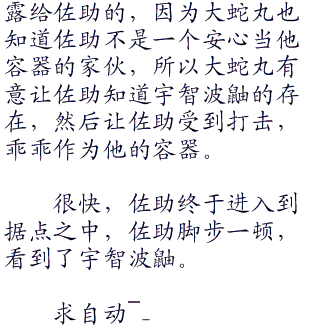 露给佐助的，因为大蛇丸也
知道佐助不是一个安心当他
容器的家伙，所以大蛇丸有
意让佐助知道宇智波鼬的存
在，然后让佐助受到打击，
乖乖作为他的容器。
很快，佐助终于进入到
据点之中，佐助脚步一顿，
看到了宇智波鼬。
求自动￣_